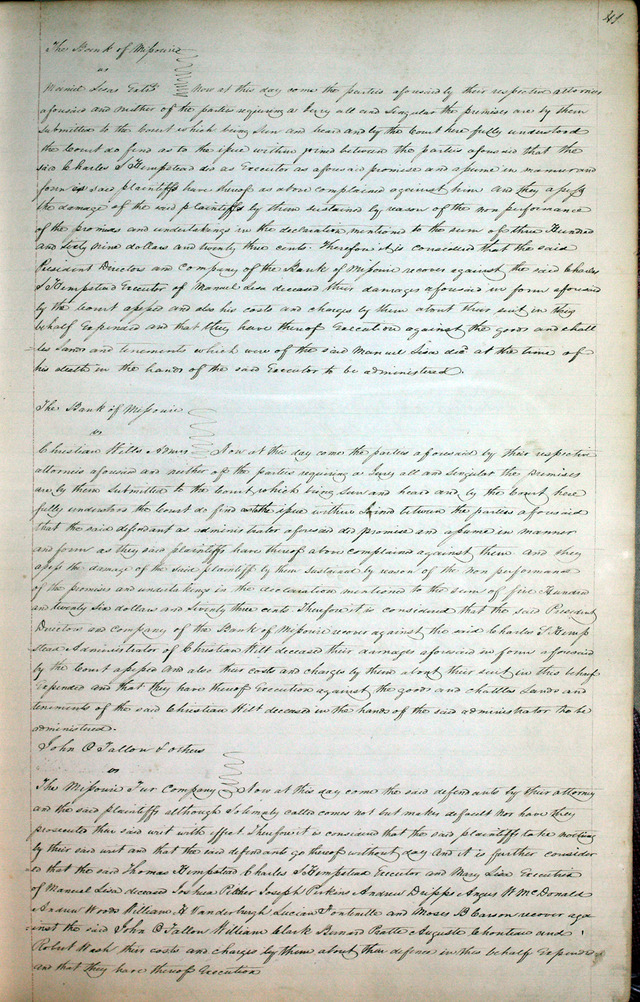 The Bank of Missouri
vs
Manuel Lisas Extr. Now at this day come the parties aforesaid by their respective attornies
aforesaid and neither of the parties requiring a Jury all and Singular the premises are by them
Submitted to the Court which being Seen and heard and by the Court here fully understood
the Court do find as to the issue within joined between the parties aforesaid that the
said Charles S Hempstead did as Executor as aforesaid promise and assume in manner and
form as said plaintiffs have thereof as above complained against him And they assess
the damage of the said plaintiffs by them sustained by reason of the non performance
of the promises and undertakings in the declaration mentioned to the sum of three Hundred
and Sixty nine dollars and twenty three cents. Therefore it is considered that the said
President Directors and Company of the Bank of Missouri recover against the said Charles
S Hempstead Executor of Manuel Lisa deceased their damages aforesaid in form aforesaid
by the Court assessed and also his costs and charges by them about their suit in this
behalf Expended and that they have thereof Execution against the goods and chatt
les Lands and tenements which were of the said Manuel Lisa decd at the time of
his death in the hands of the said Executor to be administered.
The Bank of Missouri
vs
Christian Wilts Admr Now at this day come the parties aforesaid by their respective
attornies aforesaid and neither of the parties requiring a Jury all and Singular the premises
are by them Submitted to the Court which being Seen and heard and by the Court here
fully understood the Court do find as to the issue within Joined between the parties aforesaid
that the said defendant as administrator aforesaid did promise and assume in manner
and form as they said plaintiffs have thereof above complained against them And they
assess the damage of the said plaintiff by them Sustained by reason of the non performance
of the promises and undertakings in the declaration mentioned to the sum of five Hundred
and twenty Six dollars and Seventy three cents Therefore it is considered that the said President
Directors and Company of the Bank of Missouri recover against the said Charles S. Hemp
stead Administrator of Christian Wilt deceased their damages aforesaid in form aforesaid
by the Court assessed And also their costs and charges by them about their suit in this behalf
Expended and that they have thereof Execution against the goods and chattles Lands and
tenements of the said Christian Wilt deceased in the hands of the said administrator to be
administered.
John O Fallon & others
vs
The Missouri Fur Company Now at this day come the said defendants by their attorney
and the said plaintiffs although Solemnly called comes not but makes default Nor have they
prosecuted their said writ with effect Therefore it is considered that the said plaintiffs take nothing
by their said writ and that the said defendants go thereof without day And it is further consider
ed that the said Thomas Hempstead Charles S Hempstead Executor and Mary Lisa Executrix
of Manuel Lisa deceased Joshua Pilcher Joseph Perkins Andrew Dripps Angus W McDonald
Andrew Woods William H Vanderburgh Lucian Fontenelle and Moses B Carson recover aga
inst the said John O Fallon William Clark Bernard Pratte Auguste Chouteau and
Robert Wash their costs and charges by them about their defence in this behalf Expended
and that they have thereof Execution